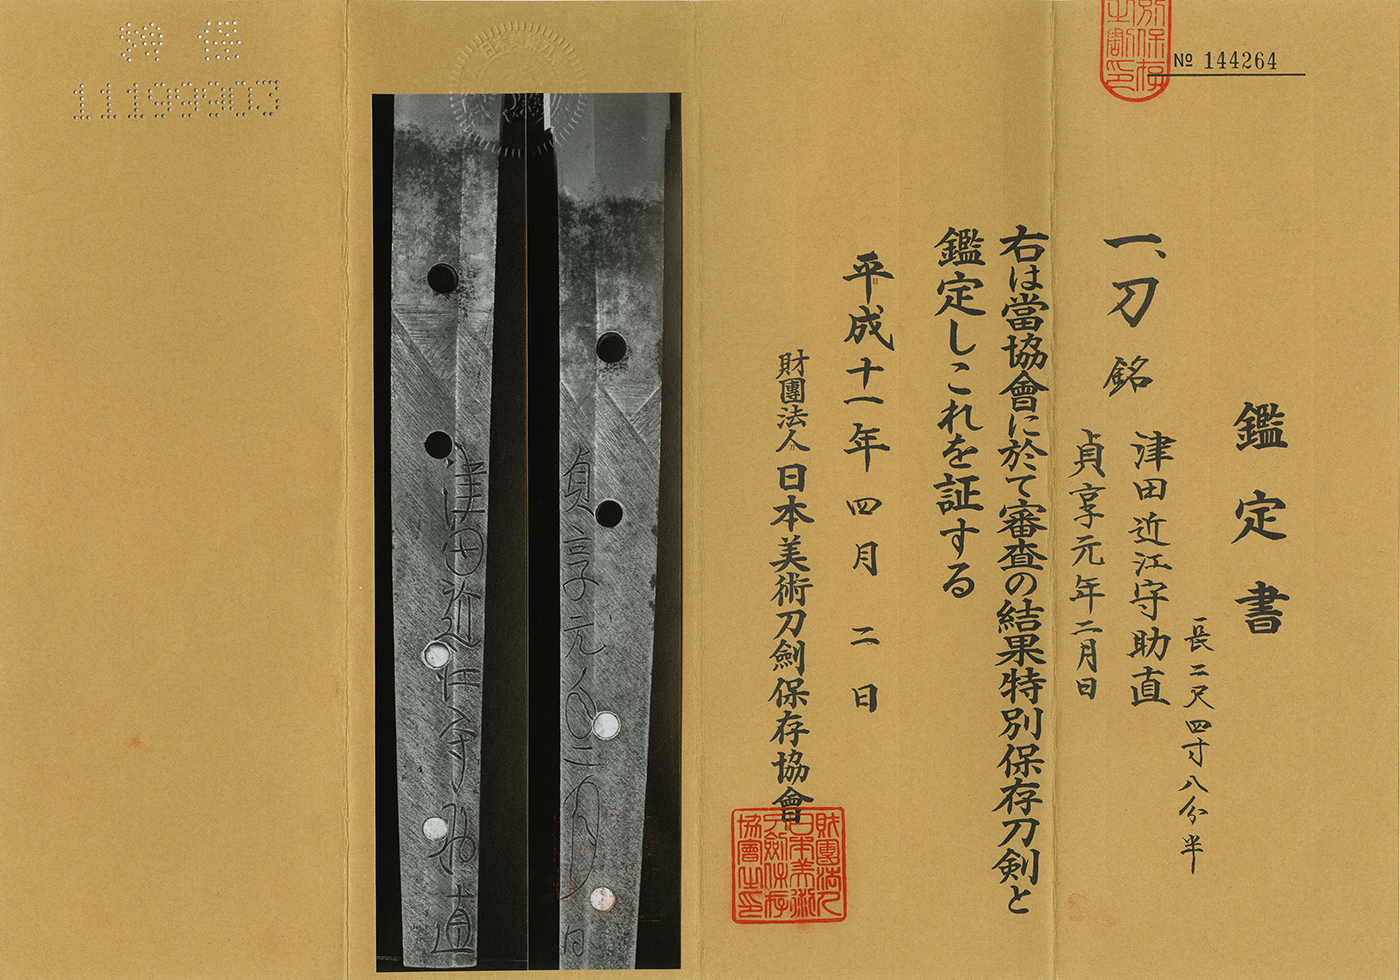 № 144264
鑑定書
一、刀 銘 津田近江守助直
貞享元年二月日
長二尺四寸八分半
右は當協會に於て審査の結果特別保存刀剣と
鑑定しこれを証する
平成十一年四月二日
財團法人日本美術刀劍保存協會
財團法人日本美術刀劍保存協會之印
貞享元年二月日
津田近江守助直
11199903